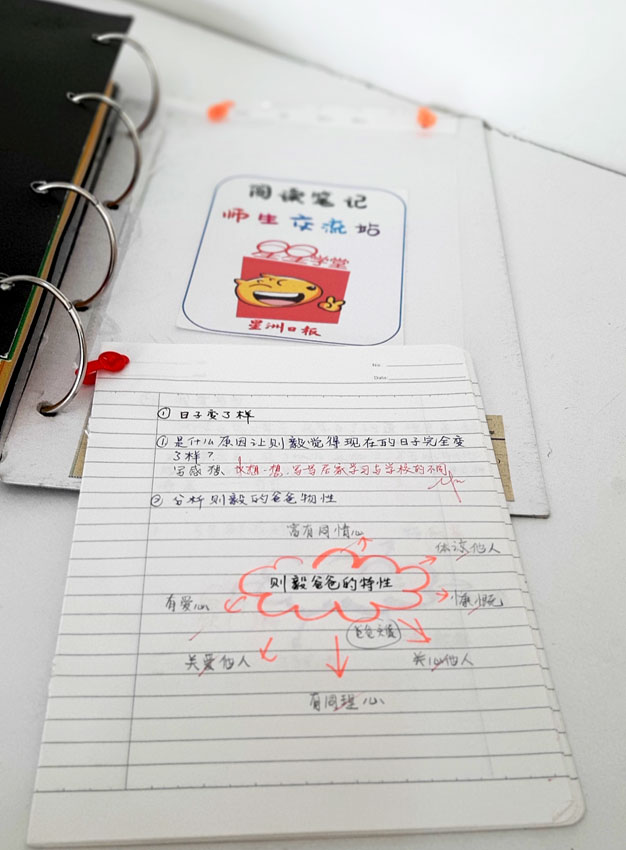 阅读笔记
师生交流站
学堂
星洲日报
No.
Date:
① 日子变了样
① 是什么原因让则毅觉得现在的日子完全变
了样？
写感想、想一想，写写居家学习与学校的不同
② 分析则毅的爸爸物性
富有同情心
体谅他人
则毅爸爸的特性
有爱心
慷慨
爸爸
关爱他人
关心他人
有同理心